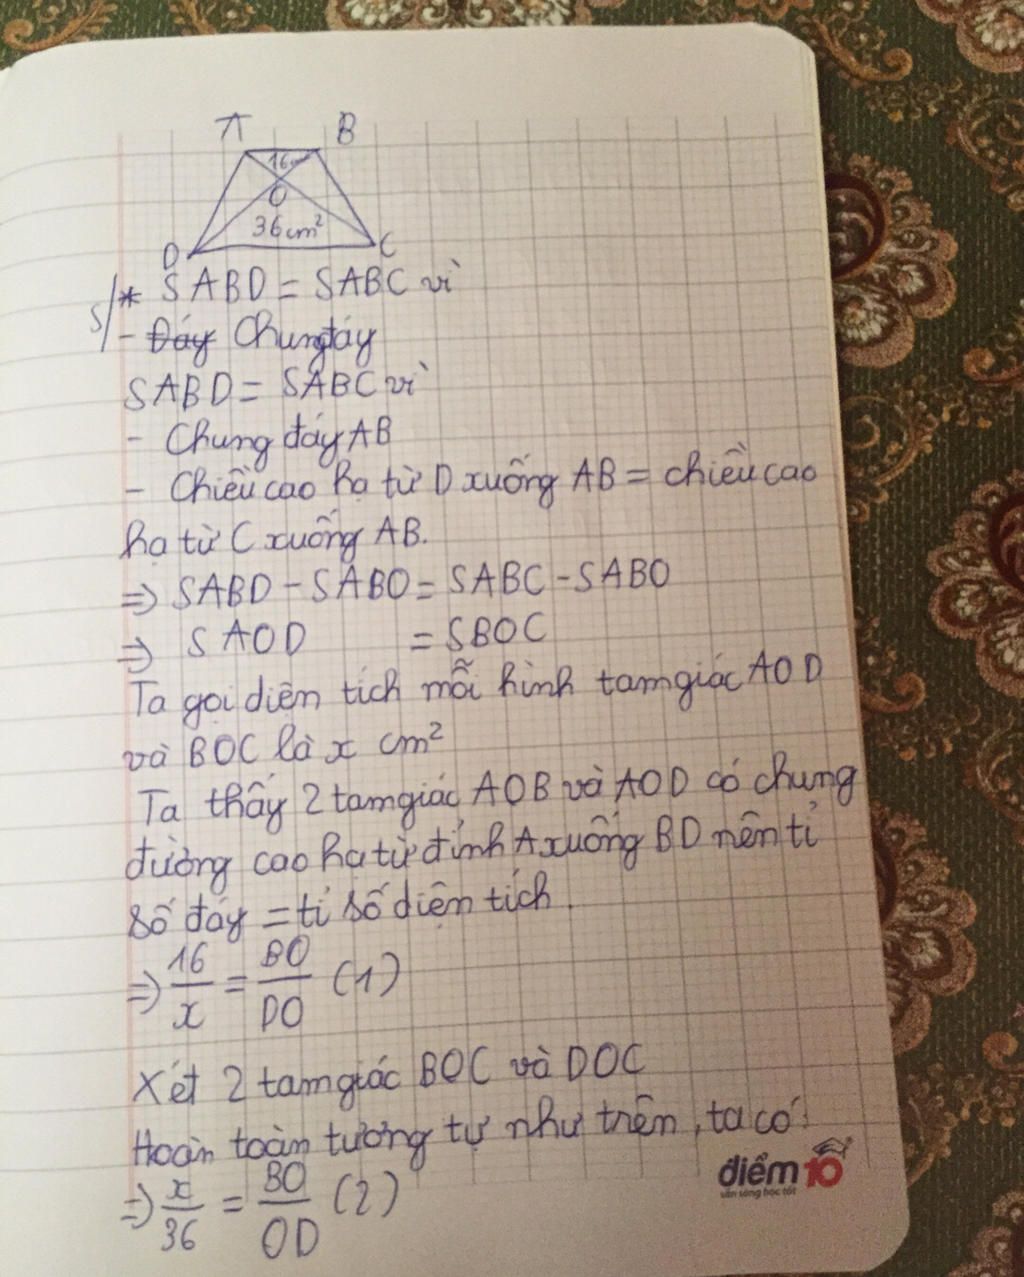 A B
16cm
O
36cm²
D C
S/* SABD = SABC vì
- Đáy Chung đáy
SABD = SABC vì
- Chung đáy AB
- Chiều cao hạ từ D xuống AB = chiều cao
hạ từ C xuống AB.
=> SABD - SABO = SABC - SABO
=> SAOD = SBOC
Ta gọi diện tích mỗi hình tam giác AOD
và BOC là x cm²
Ta thấy 2 tam giác AOB và AOD có chung
đường cao hạ từ đỉnh A xuống BD nên tỉ
số đáy = tỉ số diện tích.
=> 16/x = BO/DO (1)
Xét 2 tam giác BOC và DOC
Hoàn toàn tương tự như trên, ta có:
=> x/36 = BO/OD (2)
điểm 10
sẵn sàng học tốt